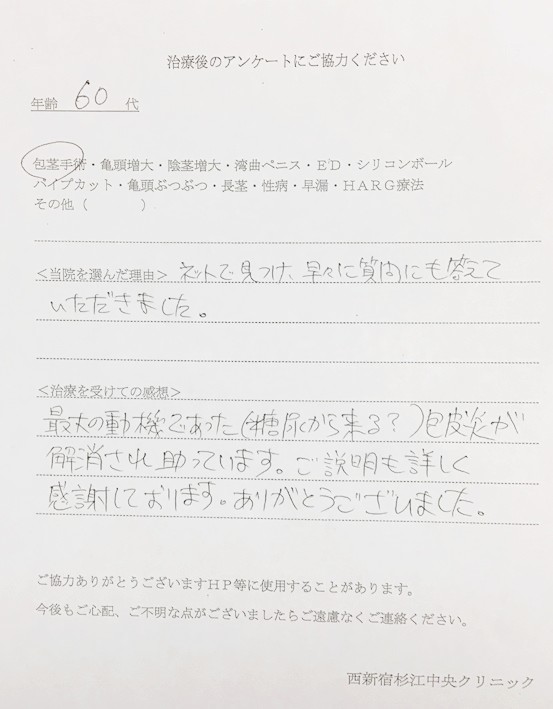 治療後のアンケートにご協力ください
年齢 60 代
包茎手術・亀頭増大・陰茎増大・湾曲ペニス・ED・シリコンボール
パイプカット・亀頭ぶつぶつ・長茎・性病・早漏・HARG療法
その他（　　　）
＜当院を選んだ理由＞ ネットで見つけ、早々に質問にも答えて
いただきました。
＜治療を受けての感想＞
最大の動機であった(糖尿から来る?)包皮炎が
解消され助っています。ご説明も詳しく
感謝しております。ありがとうございました。
ご協力ありがとうございますHP等に使用することがあります。
今後もご心配、ご不明な点がございましたらご遠慮なくご連絡ください。
西新宿杉江中央クリニック